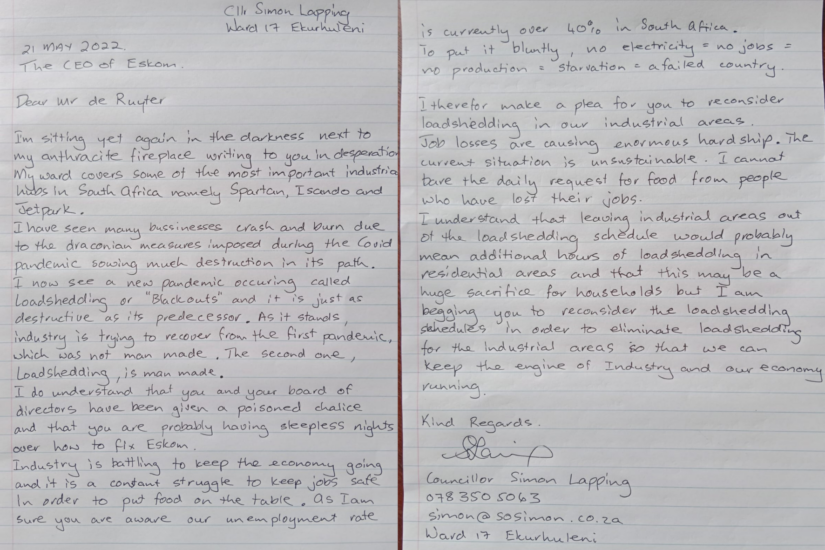 Cllr Simon Lapping
Ward 17 Ekurhuleni
21 MAY 2022.
The CEO of Eskom.
Dear Mr de Ruyter
I'm sitting yet again in the darkness next to
my anthracite fireplace writing to you in desperation
My ward covers some of the most important industria
Hubs in South Africa namely Spartan, Isando and
Jetpark.
I have seen many bussinesses crash and burn due
to the draconian measures imposed during the Covid
pandemic sowing much destruction in its path.
I now see a new pandemic occuring called
Loadshedding or "Blackouts" and it is just as
destructive as its predecessor. As it stands,
industry is trying to recover from the first pandemic,
which was not man made. The second one,
Loadshedding, is man made.
I do understand that you and your board of
directors have been given a poisoned chalice
and that you are probably having sleepless nights
over how to fix Eskom.
Industry is battling to keep the economy going
and it is a constant struggle to keep jobs safe
in order to put food on the table. As I am
sure you are aware our unemployment rate
is currently over 40% in South Africa.
To put it bluntly, no electricity = no jobs =
no production = starvation = a failed country.
I therefor make a plea for you to reconsider
loadshedding in our industrial areas.
Job losses are causing enormous hardship. The
current situation is unsustainable. I cannot
bare the daily request for food from people
who have lost their jobs.
I understand that leaving industrial areas out
of the loadshedding schedule would probably
mean additional hours of loadshedding in
residential areas and that this may be a
huge sacrifice for households but I am
begging you to reconsider the loadshedding
schedules in order to eliminate loadshedding
for the Industrial areas so that we can
keep the engine of Industry and our economy
running.
Kind Regards.
Councillor Simon Lapping
078 350 5063
simon@sosimon.co.za
Ward 17 Ekurhuleni